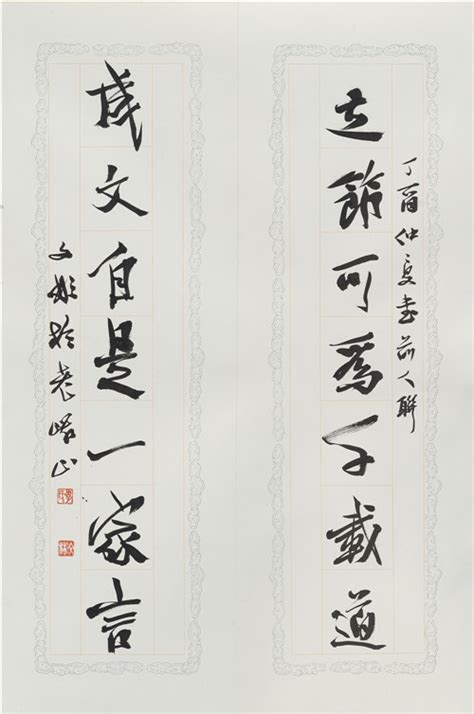 丁酉仲夏書前人聯
立節可為千載道
成文自是一家言
文彬於老山